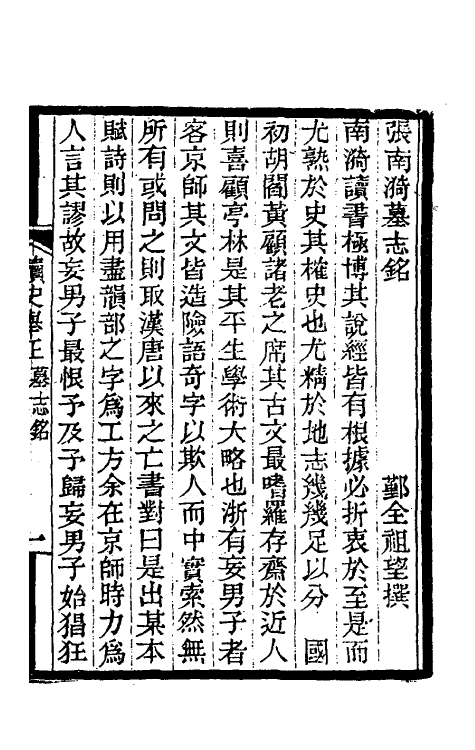 張南漪墓志銘　　鄞全祖望撰
南漪讀書極博其說經皆有根據必折衷於至是而
尤熟於史其權史也尤精於地志幾幾足以分　國
初胡閻黃顧諸老之席其古文最嗜羅存齋於近人
則喜顧亭林是其平生學術大略也浙有妄男子者
客京師其文皆造險語奇字以欺人而中實索然無
所有或問之則取漢唐以來之亡書對曰是出某本
賦詩則以用盡韻部之字爲工方余在京師時力爲
人言其謬故妄男子最恨予及予歸妄男子始猖狂
讀史舉正　墓志銘　一